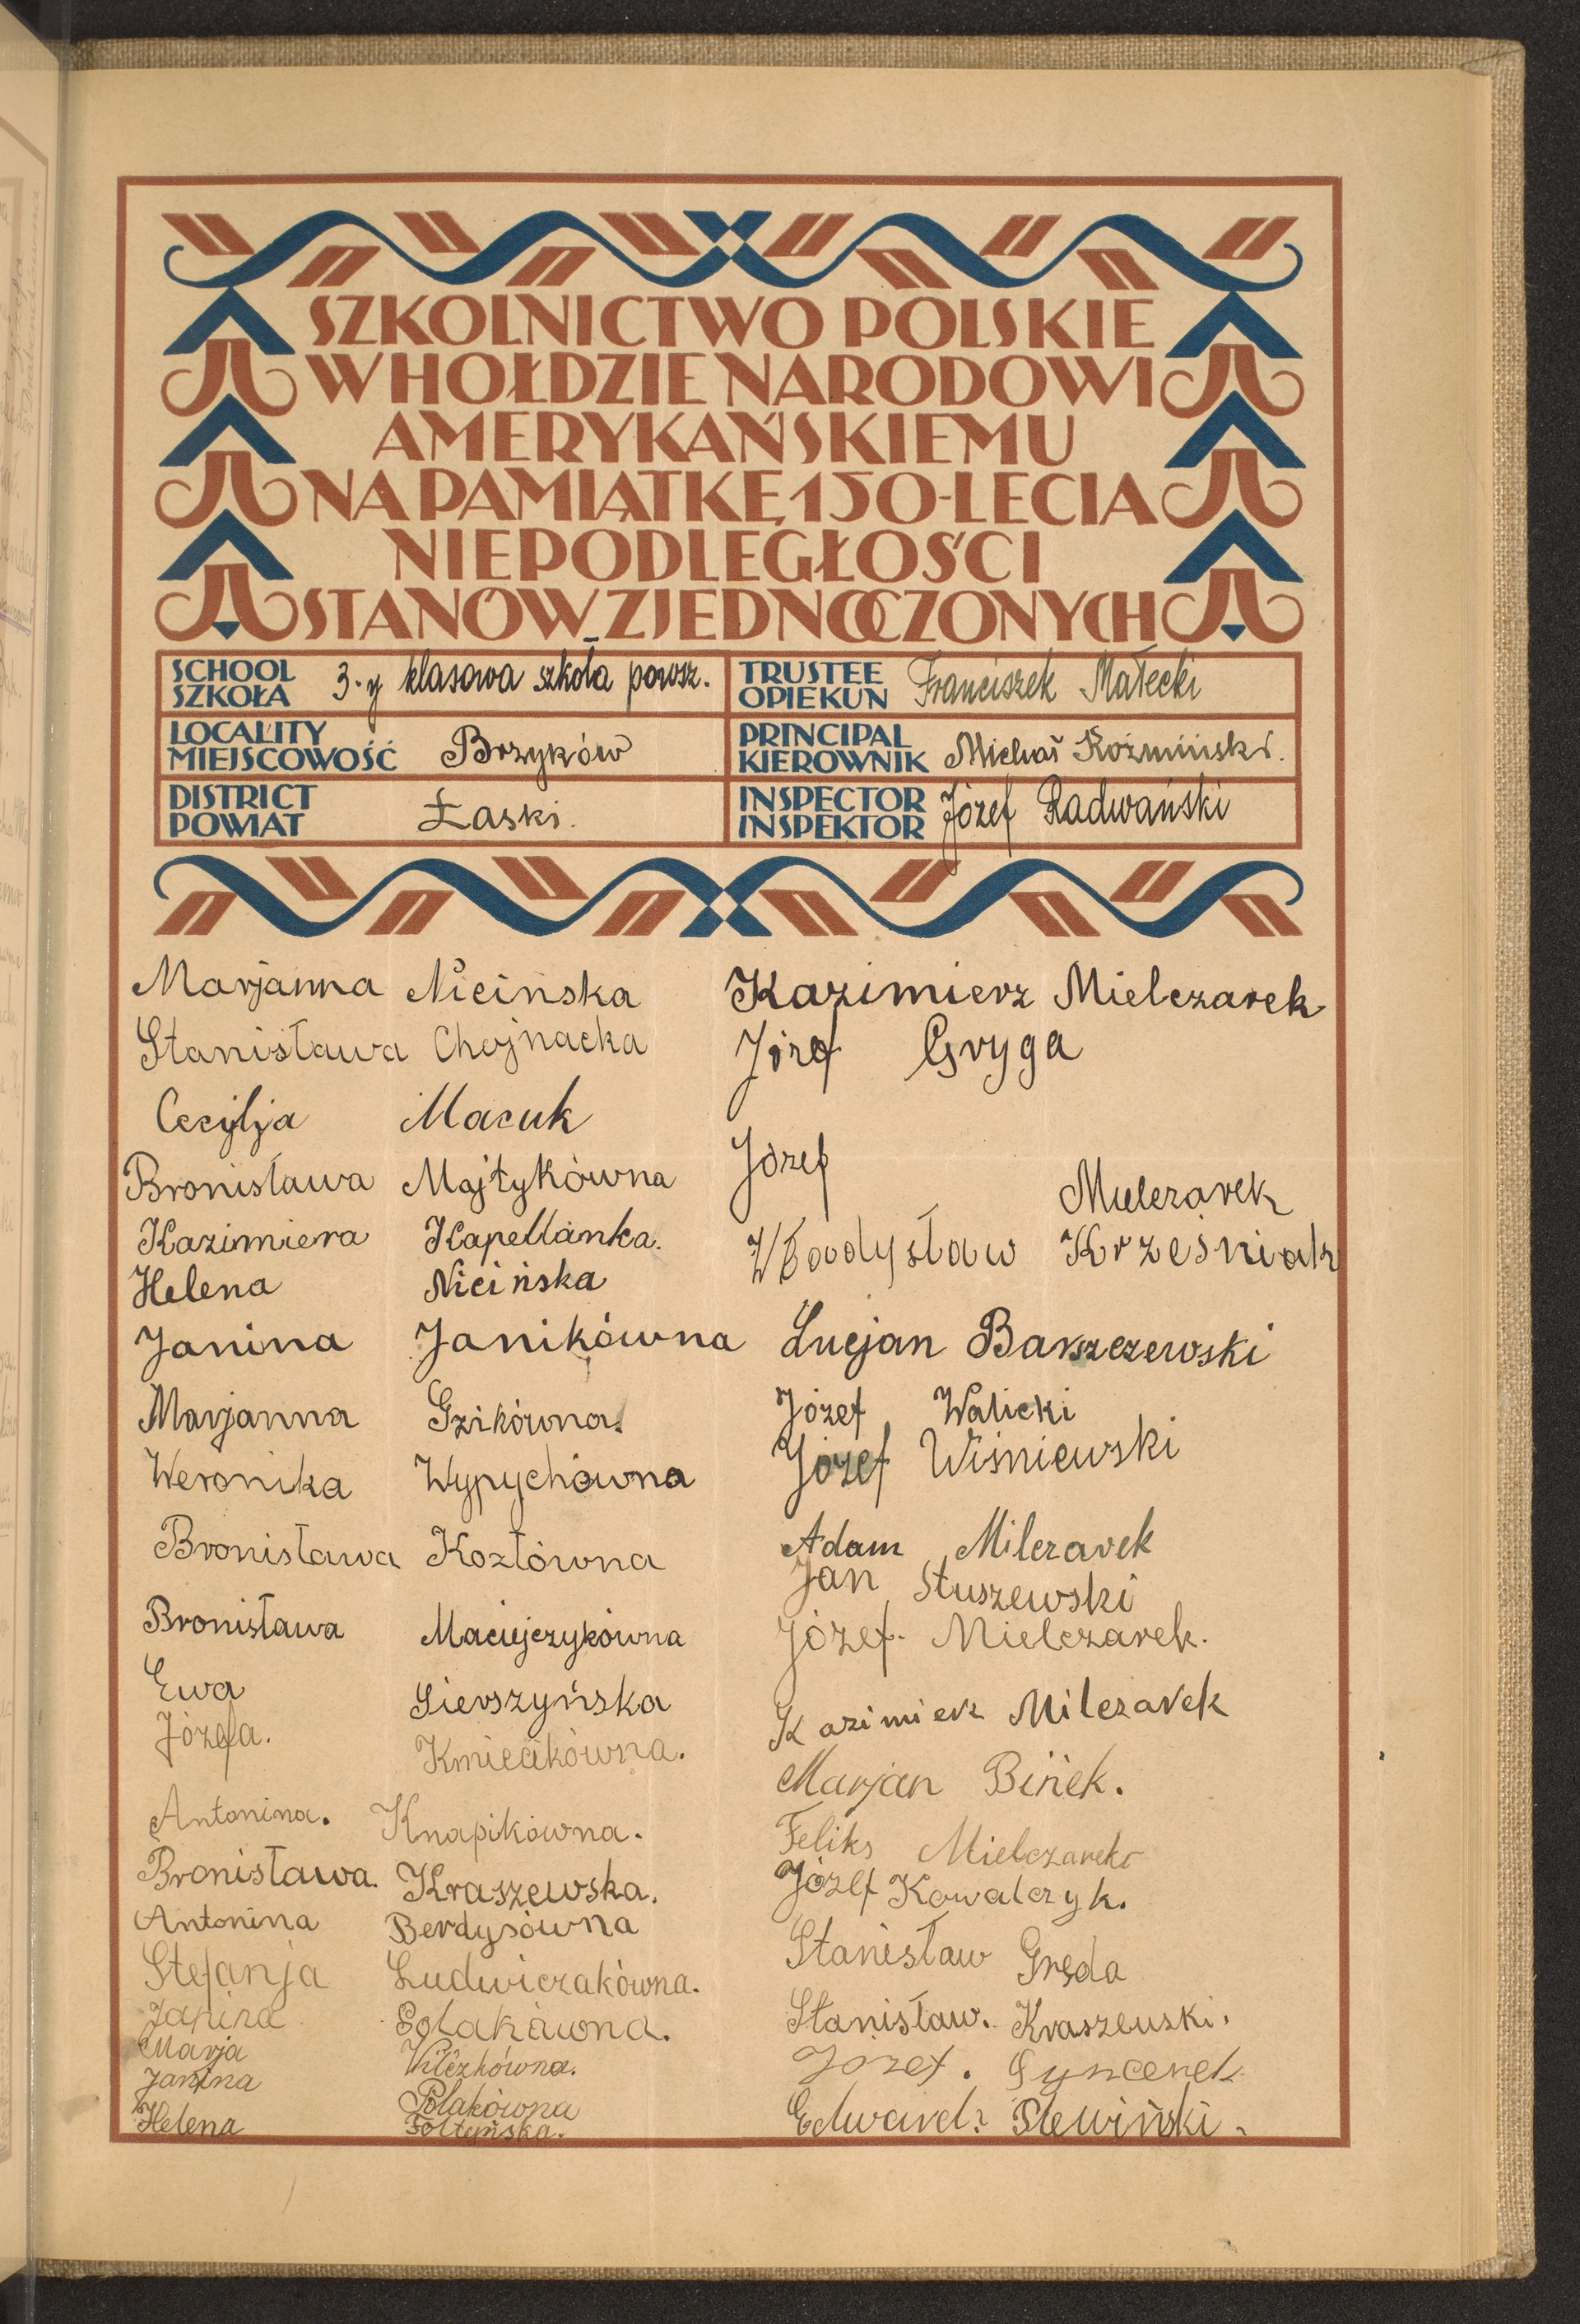 SZKOLNICTWO POLSKIE
W HOŁDZIE NARODOWI
AMERYKAŃSKIEMU
NA PAMIĄTKĘ 150-LECIA
NIEPODLEGŁOŚCI
STANÓW ZJEDNOCZONYCH
SCHOOL
SZKOŁA 3-y klasowa szkoła powsz.
LOCALITY
MIEJSCOWOŚĆ Brzyków
DISTRICT
POWIAT Łaski.
TRUSTEE
OPIEKUN Franciszek Małecki
PRINCIPAL
KIEROWNIK Michał Koźmiński.
INSPECTOR
INSPEKTOR Józef Radwański
Marjanna Nicińska
Stanisława Chojnacka
Cecylja Macuk
Bronisława Majtykówna
Kazimiera Kapellanka.
Helena Nicińska
Janina Janikówna
Marjanna Gzikówna.
Weronika Wypychówna
Bronisława Kozłówna
Bronisława Maciejczykówna
Ewa Sierszyńska
Józefa. Kmiecikówna.
Antonina. Knapikówna.
Bronisława. Kraszewska.
Antonina Berdysówna
Stefanja Ludwiczakówna.
Janina Polakówna.
Marja Wilczkówna.
Janina Polakówna
Helena
Kazimierz Mielczarek
Józef Gryga
Józef Mielczarek
Władysław Krześniak
Lucjan Barszczewski
Józef Walicki
Józef Wiśniewski
Adam Milczarek
Jan Stuszewski
Józef. Mielczarek.
Kazimierz Milczarek
Marjan Binek.
Feliks Mielczarek
Józef Kowalczyk.
Stanisław Gręda
Stanisław. Kraszewski.
Józef.
Edward. Plewiński.